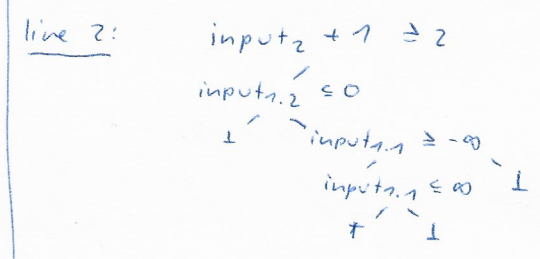 line 2: input₂ + 1 ≥ 2
input₁.₂ ≤ 0
⊥ input₁.₁ ≥ -∞
input₁.₁ ≤ ∞ ⊥
⊤ ⊥